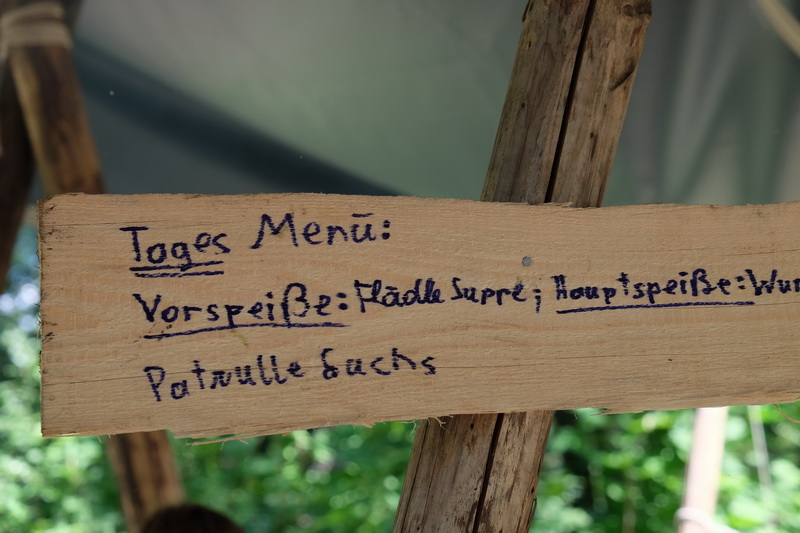 Tages Menü:
Vorspeiße: Flädle Suppe; Hauptspeiße: Wur
Patrulle Luchs